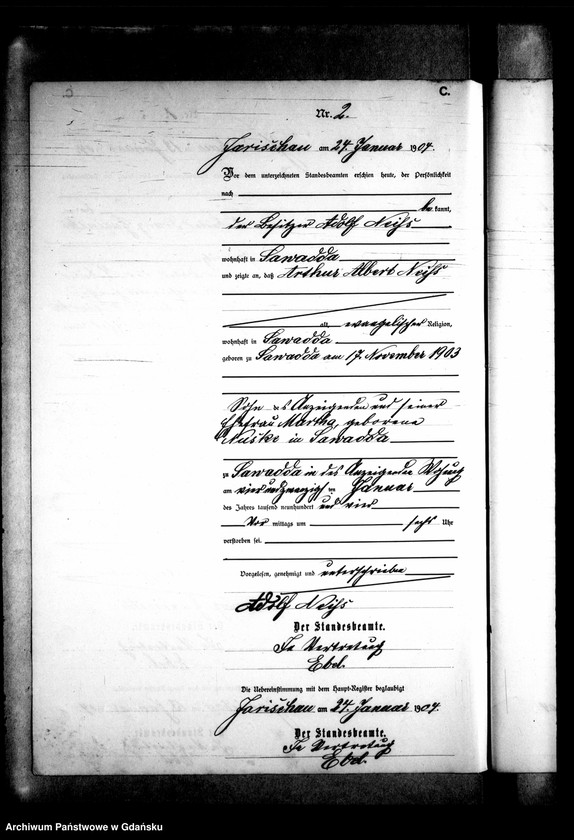 C.
Nr. 2.
Jarischau am 24. Januar 1904.
Vor dem unterzeichneten Standesbeamten erschien heute, der Persönlichkeit
nach
be kannt,
der Besitzer Adolf Neiss
wohnhaft in Sawadda
und zeigte an, daß Arthur Albert Neiss
alt, evangelischer Religion,
wohnhaft in Sawadda
geboren zu Sawadda am 17. November 1903
Sohn des Anzeigenden und seiner
Ehefrau Martha, geborene
in Sawadda
zu Sawadda in des Anzeigenden Wohnung
am vierundzwanzigsten Januar
des Jahres tausend neunhundert und vier
Vor mittags um sechs Uhr
verstorben sei.
Vorgelesen, genehmigt und unterschrieben
Adolf Neiss
Der Standesbeamte.
In Vertretung
Ebel.
Die Uebereinstimmung mit dem Haupt-Register beglaubigt
Jarischau am 24. Januar 1904.
Der Standesbeamte.
In Vertretung
Ebel.
Archiwum Państwowe w Gdańsku